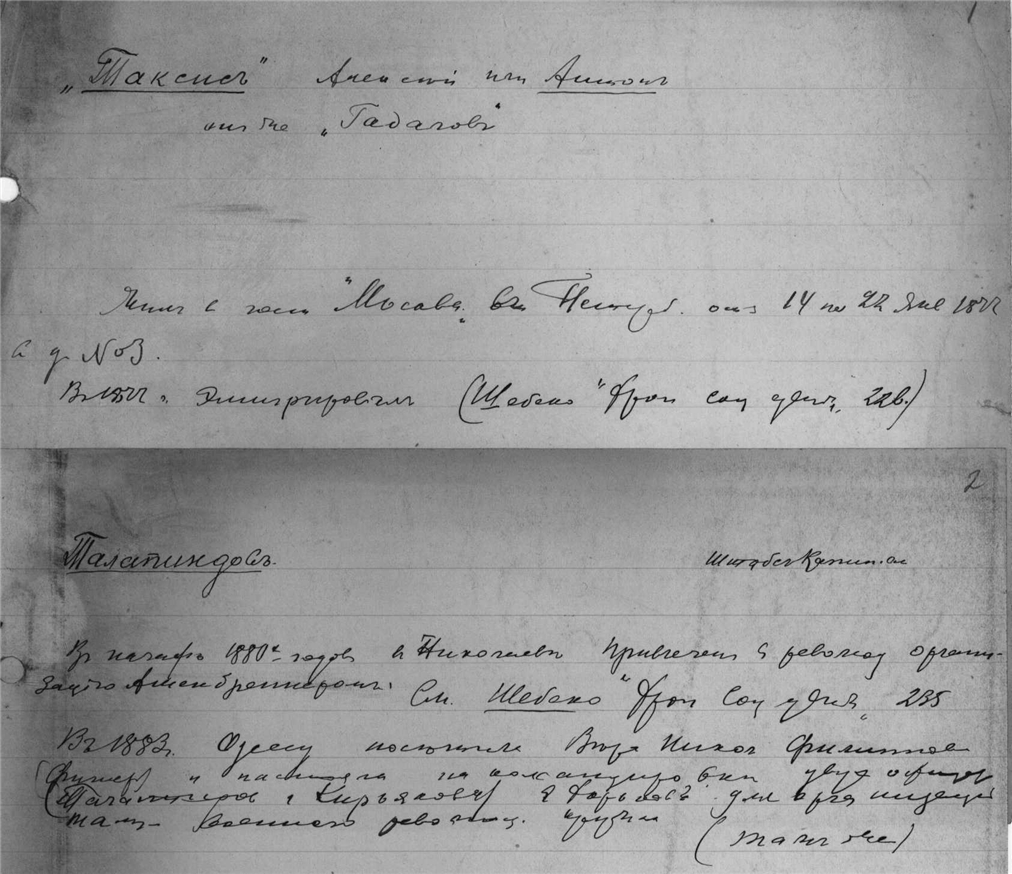 1
„Таксисъ" Алексѣй или Антонъ
онъ же „Гадаговъ"
Жилъ в "Москва„ въ Петерб. отъ 14 по 22 1877
в д. № 3.
Въ 1877 г. эмигрировалъ (Шебеко "Хрон соц движ„ 228.)
2
Талапиндовъ. Штабсъ Капитан
Въ началѣ 1880х годовъ въ Николаевѣ привлеченъ в револ органи-
зацію Ашенбреннеромъ. См. Шебеко "Хрон Соц движ„ 235
Въ 1883 г. Одессу посетила Вера Никол Филиппова
(Фигнер) и настояла на командировки двух офицер
(Талапиндова и Кирьякова) в Харьковъ для организации
тамъ военного револ. группы
(тамъ же)